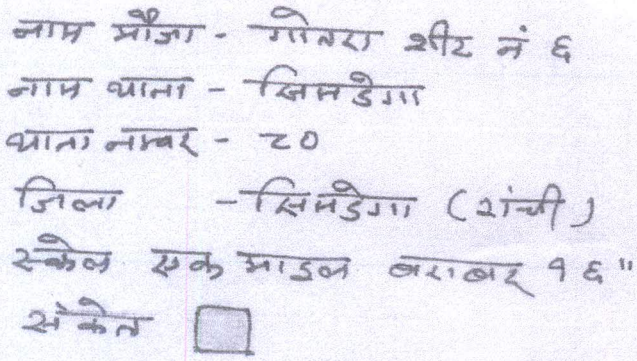 नाम मौजा - गोतरा शीट नं ६
नाम थाना - सिमडेगा
थाना नम्बर - ८०
जिला - सिमडेगा (रांची)
स्केल एक माइल बराबर १६"
संकेत